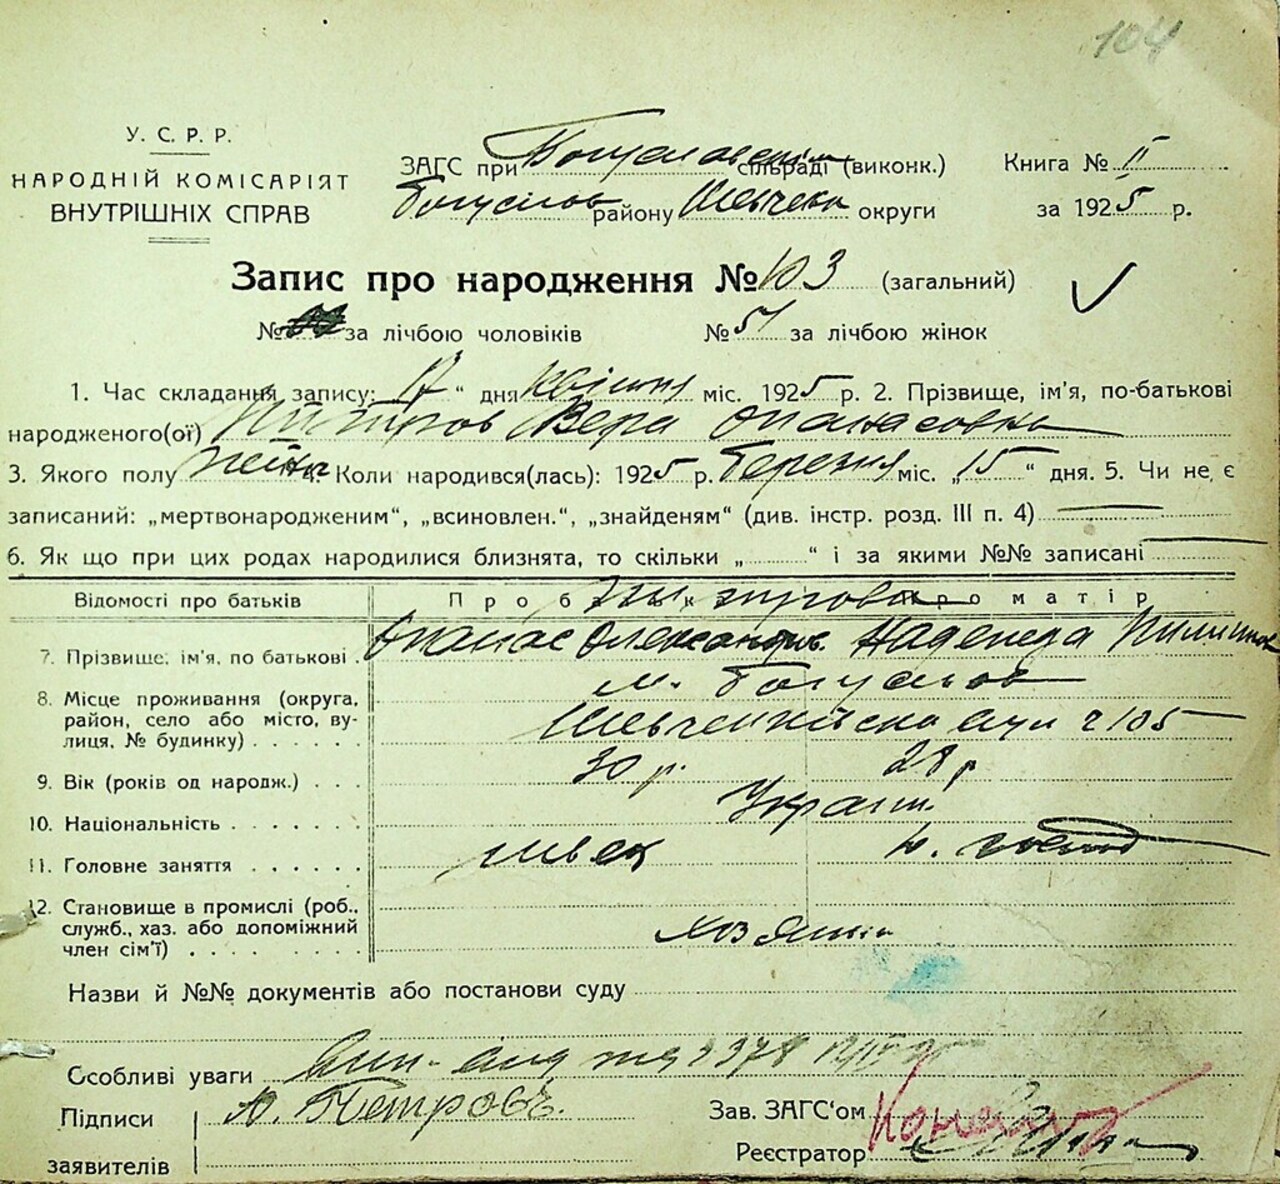 104
У. С. Р. Р.
НАРОДНІЙ КОМІСАРІЯТ
ВНУТРІШНІХ СПРАВ
ЗАГС при Богуславськім сільраді (виконк.)
Богуслав району Шевченк округи
Книга № II
за 1925 р.
Запис про народження № 103 (загальний)
№ за лічбою чоловіків № 51 за лічбою жінок
1. Час складання запису: 17 " дня квітня міс. 1925 р. 2. Прізвище, ім'я, по-батькові
народженого(ої) Вера Опанасовна
3. Якого полу 4. Коли народився(лась): 1925 р. березня міс. „15" дня. 5. Чи не є
записаний: „мертвонародженим", „всиновлен.", „знайденям" (див. інстр. розд. III п. 4)
6. Як що при цих родах народилися близнята, то скільки „ " і за якими №№ записані
Відомості про батьків Про батька Про матір
7. Прізвище, ім'я, по батькові Опанас Олександр.
8. Місце проживання (округа, район, село або місто, вулиця, № будинку) м. Богуслав
Шевченківська вул ч 105
9. Вік (років од народж.) 30 р. 28 р
10. Національність Украін.
11. Головне заняття швець
12. Становище в промислі (роб., служб., хаз. або допоміжний член сім'ї) хозяїн
Назви й №№ документів або постанови суду
Особливі уваги 978
Підписи
заявителів О. Петровъ.
Зав. ЗАГС'ом
Реєстратор